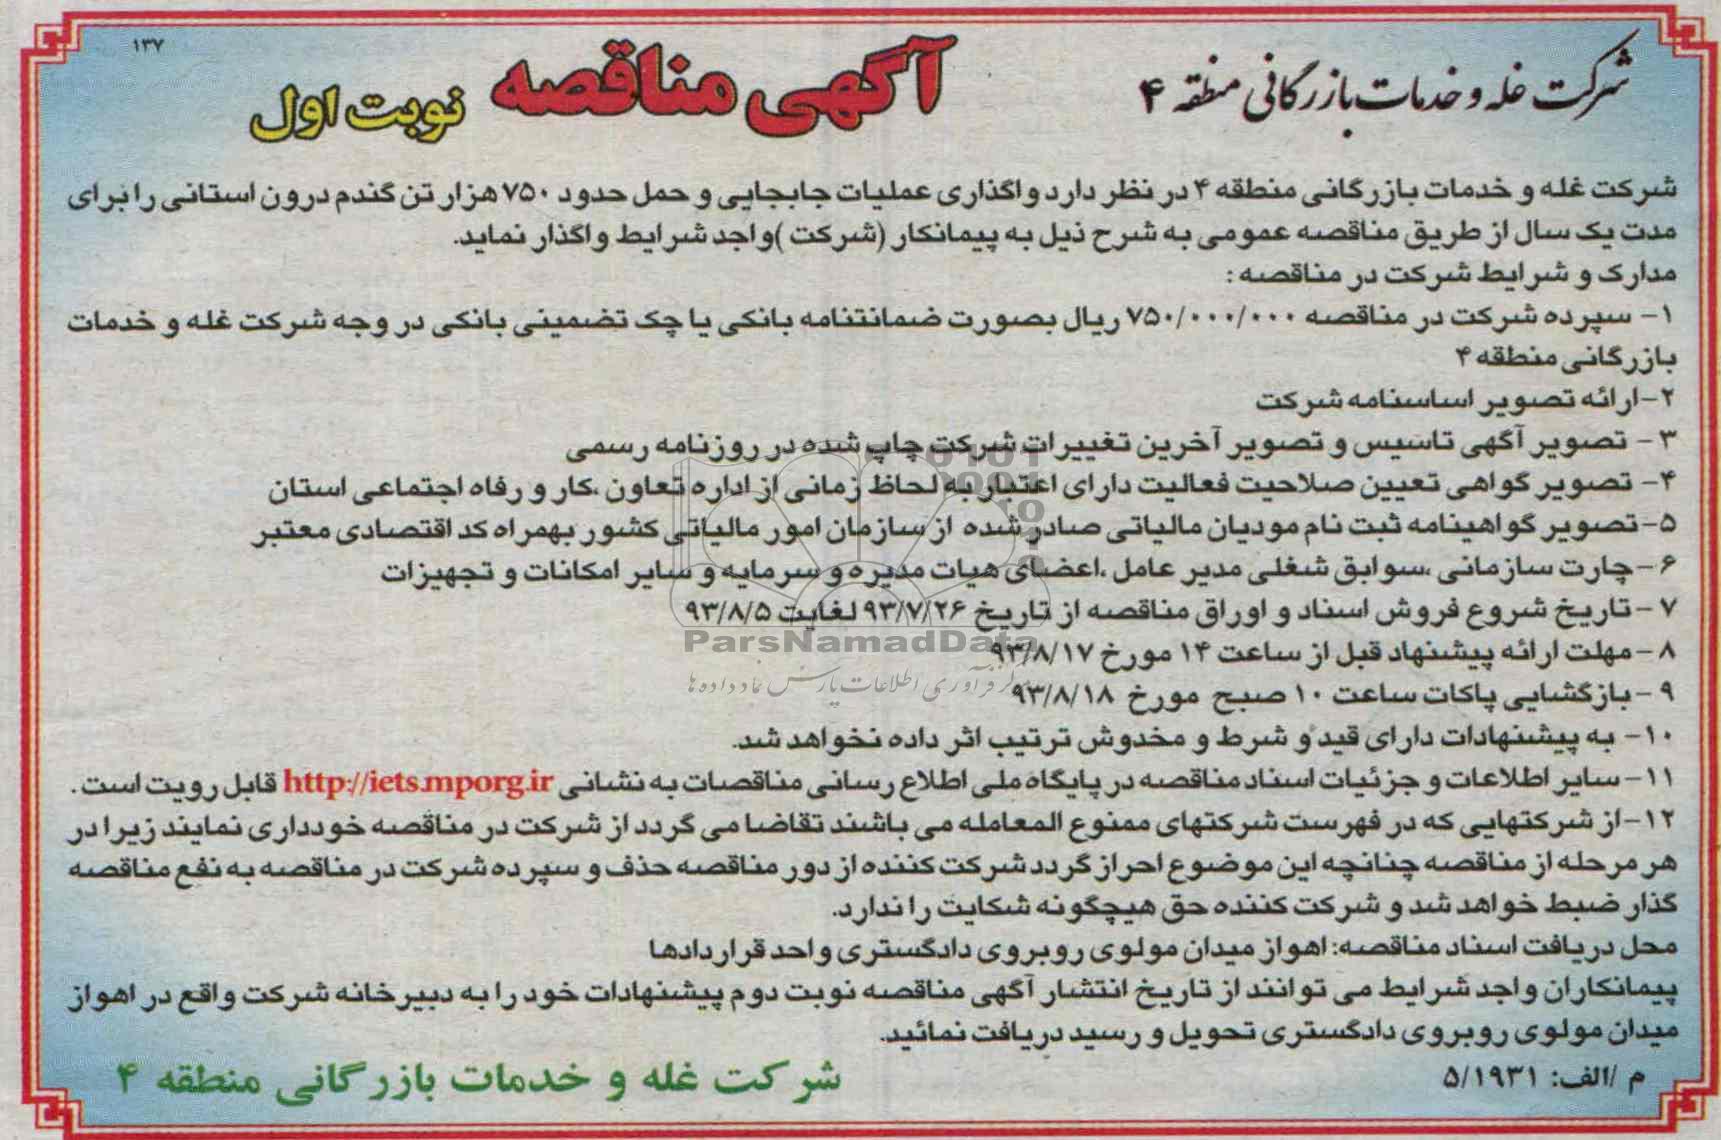 ۱۳۷
شرکت غله و خدمات بازرگانی منطقه ۴
آگهی مناقصه
نوبت اول
شرکت غله و خدمات بازرگانی منطقه ۴ در نظر دارد واگذاری عملیات جابجایی و حمل حدود ۷۵۰ هزار تن گندم درون استانی را برای
مدت یک سال از طریق مناقصه عمومی به شرح ذیل به پیمانکار (شرکت )واجد شرایط واگذار نماید.
مدارک و شرایط شرکت در مناقصه :
۱- سپرده شرکت در مناقصه ۷۵۰/۰۰۰/۰۰۰ ریال بصورت ضمانتنامه بانکی یا چک تضمینی بانکی در وجه شرکت غله و خدمات
بازرگانی منطقه ۴
۲-ارائه تصویر اساسنامه شرکت
۳- تصویر آگهی تاسیس و تصویر آخرین تغییرات شرکت چاپ شده در روزنامه رسمی
۴- تصویر گواهی تعیین صلاحیت فعالیت دارای اعتبار به لحاظ زمانی از اداره تعاون ،کار و رفاه اجتماعی استان
۵-تصویر گواهینامه ثبت نام مودیان مالیاتی صادر شده از سازمان امور مالیاتی کشور بهمراه کد اقتصادی معتبر
۶-چارت سازمانی ،سوابق شغلی مدیر عامل ،اعضای هیات مدیره و سرمایه و سایر امکانات و تجهیزات
۷- تاریخ شروع فروش اسناد و اوراق مناقصه از تاریخ ۹۳/۷/۲۶ لغایت ۹۳/۸/۵
۸-مهلت ارائه پیشنهاد قبل از ساعت ۱۴ مورخ ۹۳/۸/۱۷
۹- بازگشایی پاکات ساعت ۱۰ صبح مورخ ۹۳/۸/۱۸
۱۰- به پیشنهادات دارای قید و شرط و مخدوش ترتیب اثر داده نخواهد شد.
۱۱- سایر اطلاعات و جزئیات اسناد مناقصه در پایگاه ملی اطلاع رسانی مناقصات به نشانی http://iets.mporg.ir قابل رویت است .
۱۲-از شرکتهایی که در فهرست شرکتهای ممنوع المعامله می باشند تقاضا می گردد از شرکت در مناقصه خودداری نمایند زیرا در
هر مرحله از مناقصه چنانچه این موضوع احراز گردد شرکت کننده از دور مناقصه حذف و سپرده شرکت در مناقصه به نفع مناقصه
گذار ضبط خواهد شد و شرکت کننده حق هیچگونه شکایت را ندارد.
محل دریافت اسناد مناقصه: اهواز میدان مولوی روبروی دادگستری واحد قراردادها
پیمانکاران واجد شرایط می توانند از تاریخ انتشار آگهی مناقصه نوبت دوم پیشنهادات خود را به دبیرخانه شرکت واقع در اهواز
میدان مولوی روبروی دادگستری تحویل و رسید دریافت نمائید.
م /الف: ۵/۱۹۳۱
شرکت غله و خدمات بازرگانی منطقه ۴
ParsNamadData
مرکز فرآوری اطلاعات پارس نماد داده ها